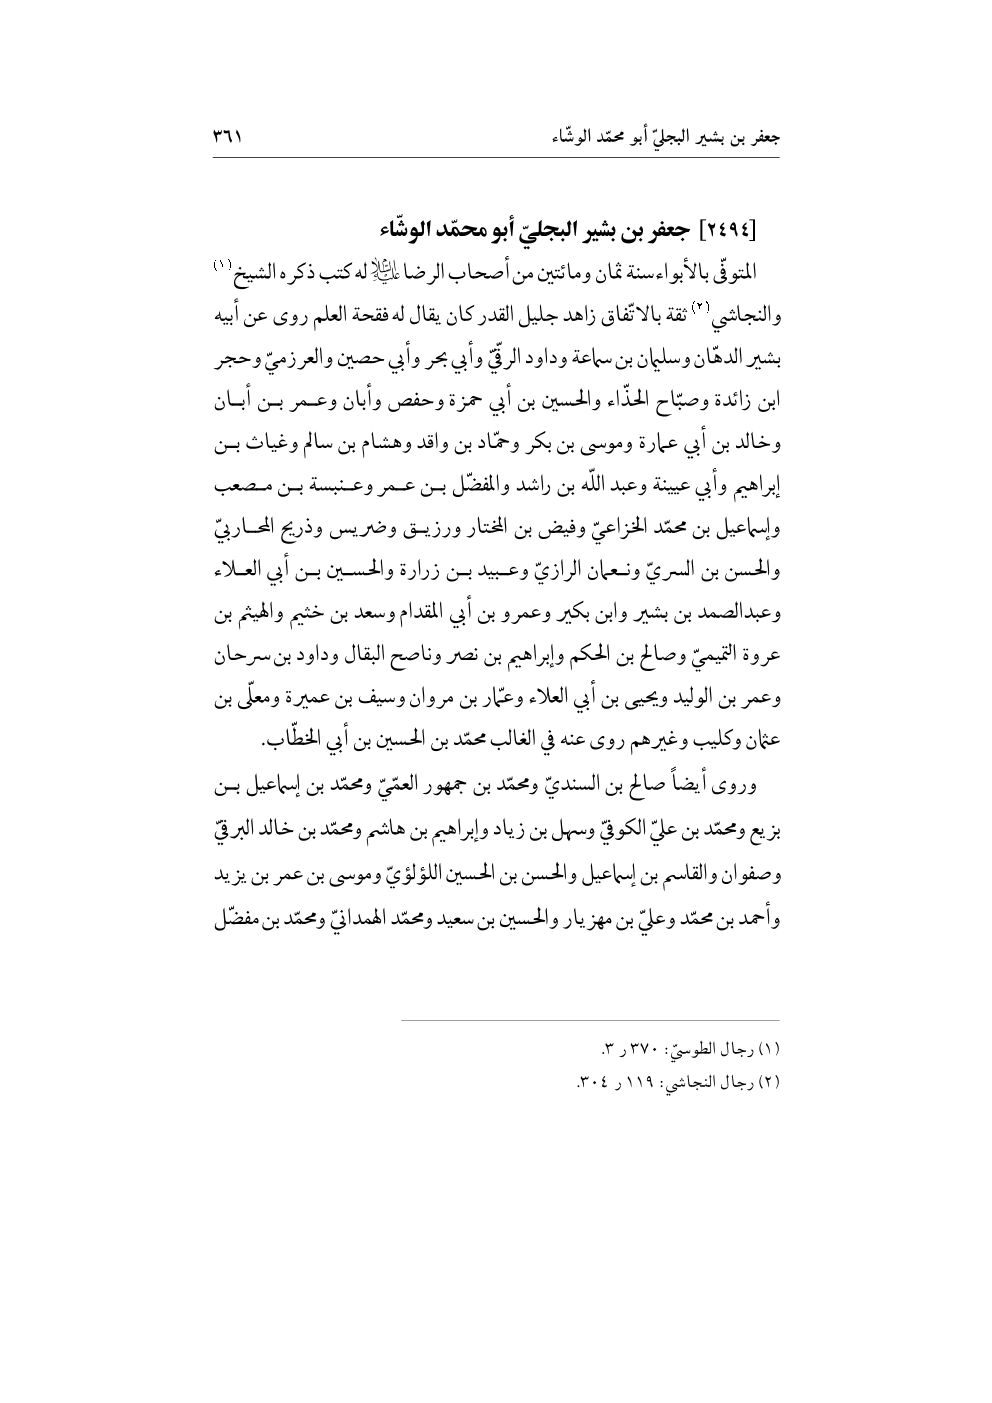 جعفر بن بشير البجليّ أبو محمّد الوشّاء ٣٦١
[٢٤٩٤] جعفر بن بشير البجليّ أبو محمّد الوشّاء
المتوفّى بالأبواء سنة ثمان ومائتين من أصحاب الرضا عليه السلام له كتب ذكره الشيخ(١)
والنجاشي(٢) ثقة بالاتّفاق زاهد جليل القدر كان يقال له فقحة العلم روى عن أبيه
بشير الدهّان وسليمان بن سماعة وداود الرقّيّ وأبي بحر وأبي حصين والعرزميّ وحجر
ابن زائدة وصبّاح الحذّاء والحسين بن أبي حمزة وحفص وأبان وعمر بن أبان
وخالد بن أبي عمارة وموسى بن بكر وحمّاد بن واقد وهشام بن سالم وغياث بن
إبراهيم وأبي عيينة وعبد اللّه بن راشد والمفضّل بن عمر وعنبسة بن مصعب
وإسماعيل بن محمّد الخزاعيّ وفيض بن المختار ورزيق وضريس وذريح المحاربيّ
والحسن بن السريّ ونعمان الرازيّ وعبيد بن زرارة والحسين بن أبي العلاء
وعبدالصمد بن بشير وابن بكير وعمرو بن أبي المقدام وسعد بن خثيم والهيثم بن
عروة التميميّ وصالح بن الحكم وإبراهيم بن نصر وناصح البقال وداود بن سرحان
وعمر بن الوليد ويحيى بن أبي العلاء وعمّار بن مروان وسيف بن عميرة ومعلّى بن
عثمان وكليب وغيرهم روى عنه في الغالب محمّد بن الحسين بن أبي الخطّاب.
وروى أيضاً صالح بن السنديّ ومحمّد بن جمهور العمّيّ ومحمّد بن إسماعيل بن
بزيع ومحمّد بن عليّ الكوفيّ وسهل بن زياد وإبراهيم بن هاشم ومحمّد بن خالد البرقيّ
وصفوان والقاسم بن إسماعيل والحسن بن الحسين اللؤلؤيّ وموسى بن عمر بن يزيد
وأحمد بن محمّد وعليّ بن مهزيار والحسين بن سعيد ومحمّد الهمدانيّ ومحمّد بن مفضّل
(١) رجال الطوسيّ: ٣٧٠ ر ٣.
(٢) رجال النجاشي: ١١٩ ر ٣٠٤.